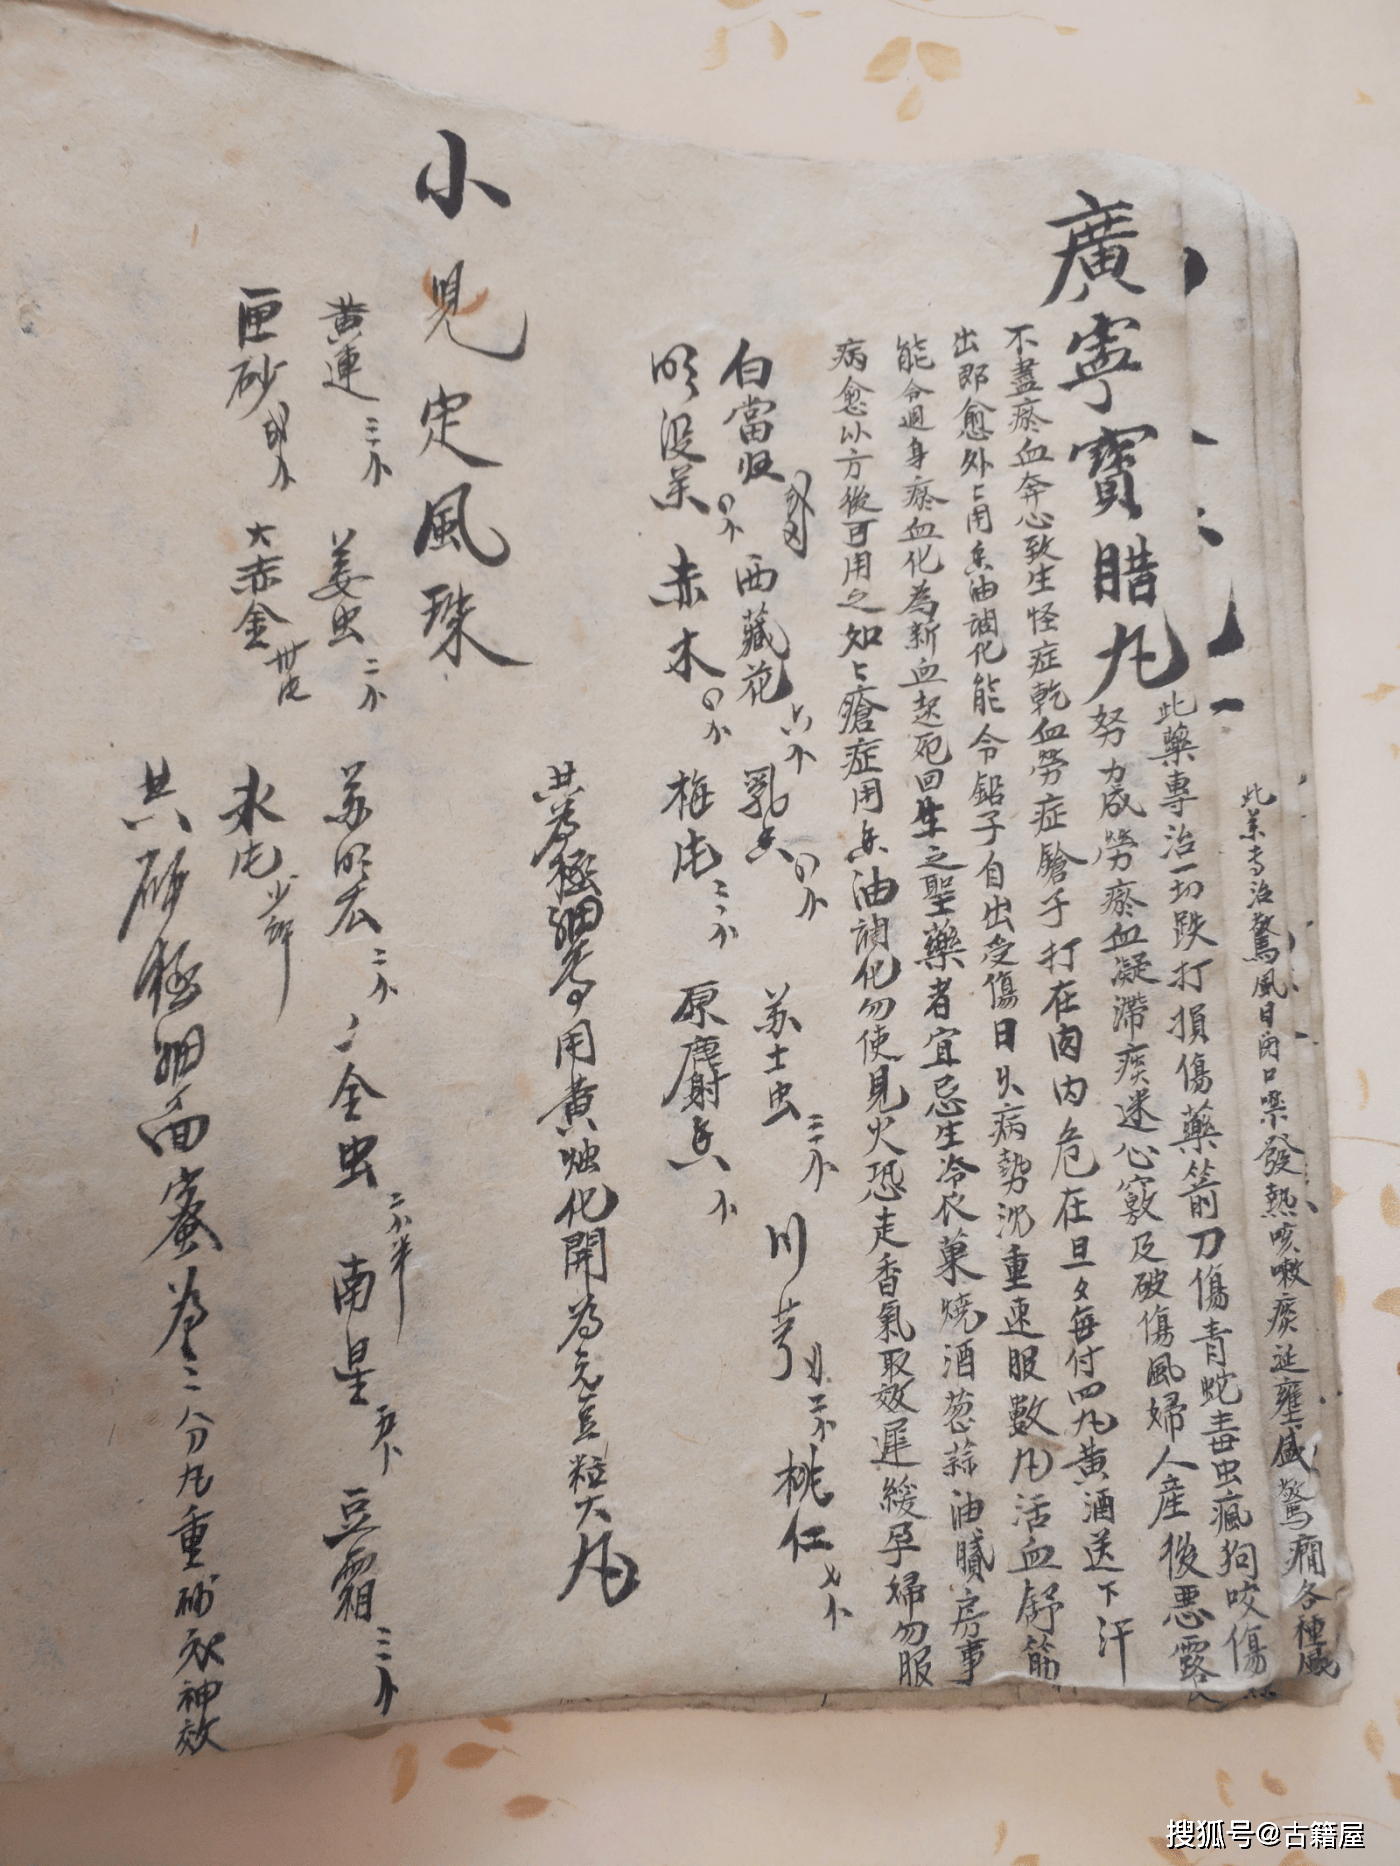 此药专治驚風目闭口噤發熱咳嗽痰涎壅盛驚癇各種風
廣寧寳腊丸
此藥專治一切跌打損傷藥箭刀傷青蛇毒虫瘋狗咬傷
努力成勞瘀血凝滯痰迷心竅及破傷風婦人産後悪露
不盡瘀血奔心致生怪症乾血勞症鎗子打在肉内危在旦夕每付四丸黄酒送下汗
出即愈外上用香油調化能令鉛子自出受傷日久病勢沉重速服數丸活血舒筋
能令週身瘀血化為新血起死回生之聖藥者宜忌生冷衣菓燒酒葱蒜油膩房事
病愈以方後可用之如上瘡症用香油調化勿使見火恐走香氣取效遲緩孕婦勿服
白當归 西藏花 六个 乳香 苏士虫 三个 川芎 二个 桃仁 七个
明没药 赤木 梅片 二个 原麝香 个
共為極細末用黄蚀化開為元豆粒大丸
小児定風珠
黄連 三个 姜虫 二个 苏明天 二个 全虫 二个半 南星 五个 豆霜 三个
匣砂 大赤金 卅片 氷片 少許
共研極細面蜜為三分丸重砂衣神效
搜狐号@古籍屋